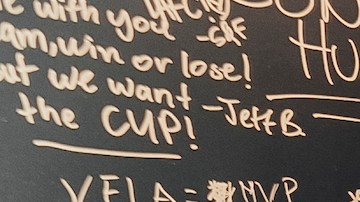 e with you
am, win or lose!
ut we want
the CUP!
-Jeff B.
HU
VELA = MVP